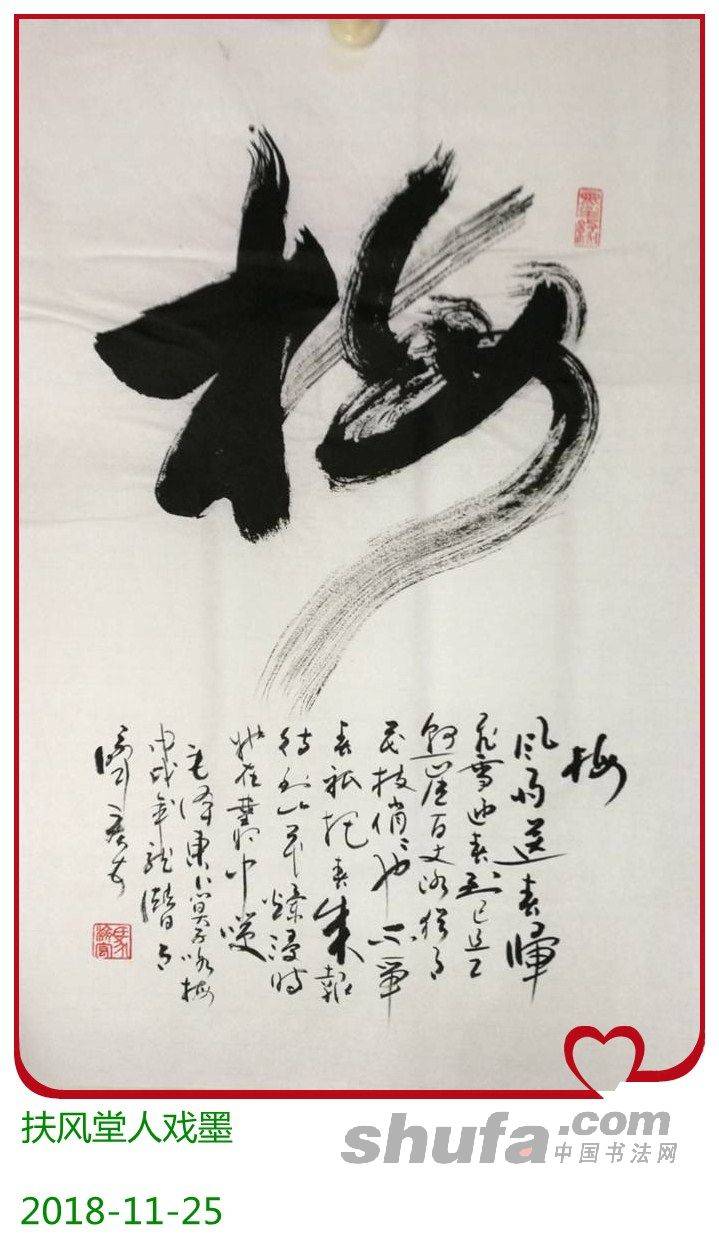 梅
梅
风雨送春
飞雪迎春到已是
悬崖百丈冰犹有
花枝俏俏也不争
春祇把春来報
待到山花烂漫时
她在丛中咲
毛泽东卜算子咏梅
戊戌年龙潜月
扶风堂人戏墨
shufa.com
中国书法网
2018-11-25